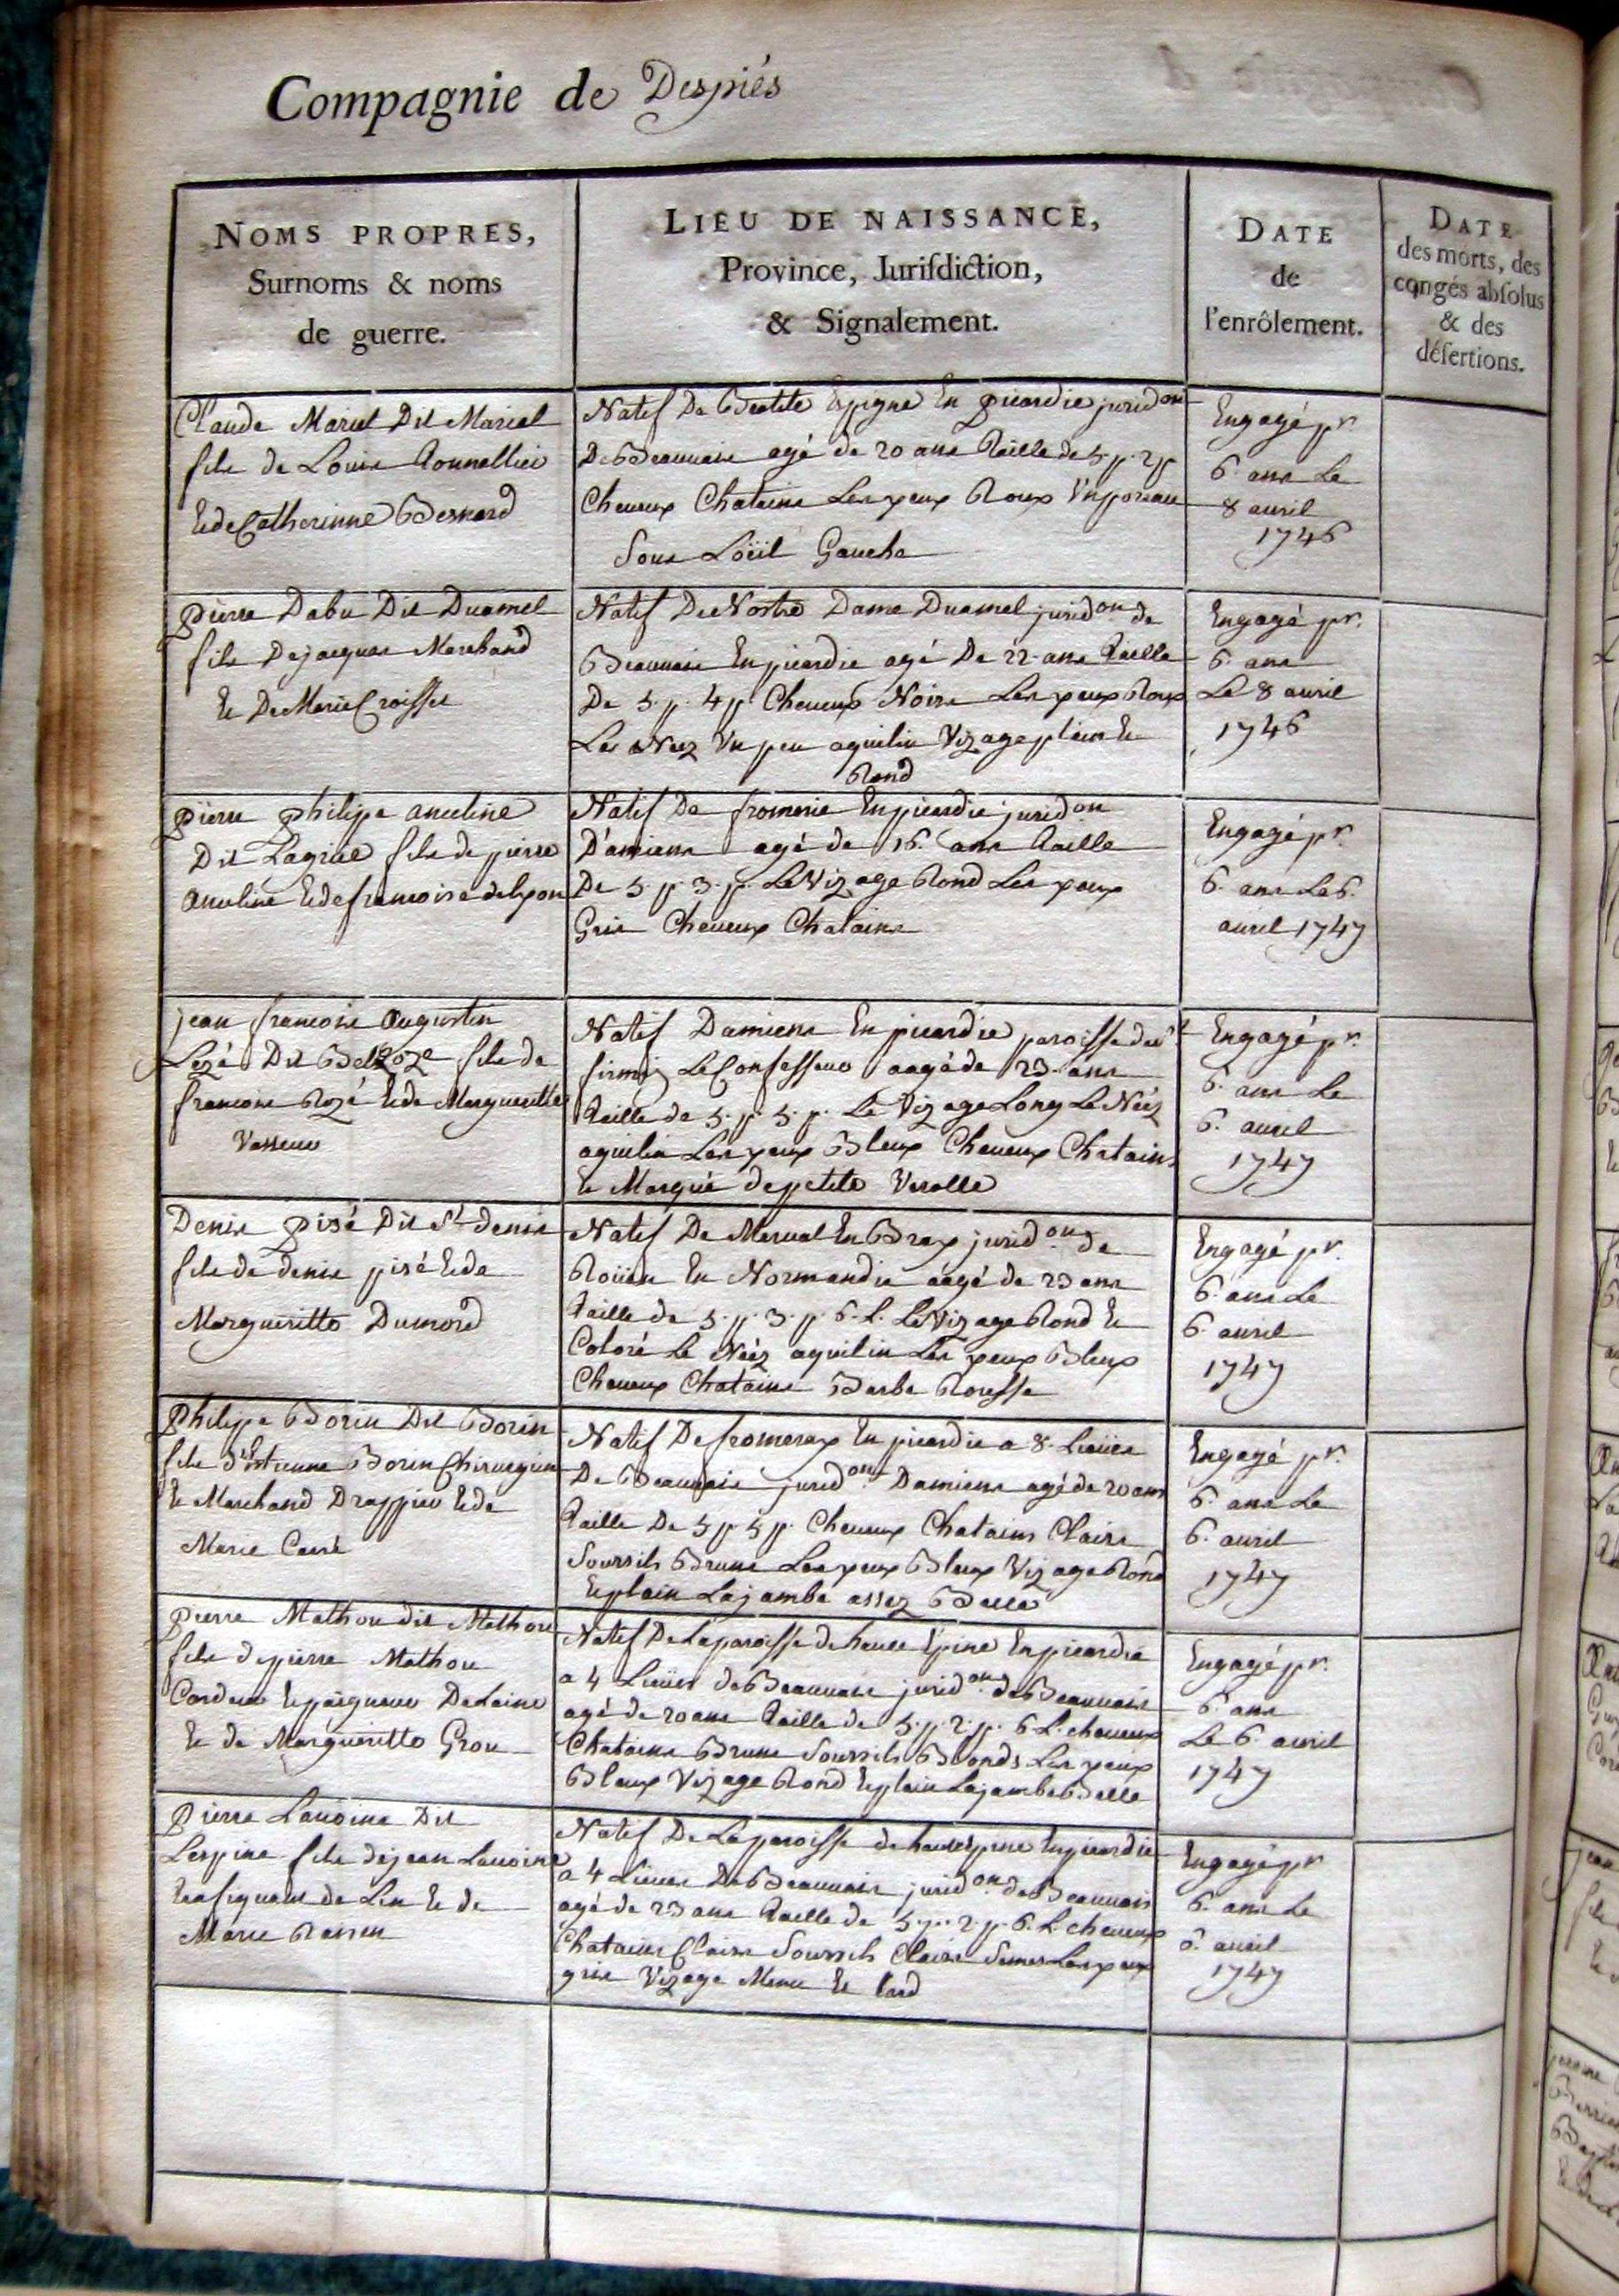 Compagnie de Despiés
NOMS PROPRES,
Surnoms & noms
de guerre.
LIEU DE NAISSANCE,
Province, Jurisdiction,
& Signalement.
DATE
de
l'enrôlement.
DATE
des morts, des
congés absolus
& des
désertions.
Claude Mariel Dit Mariel
fils de Louis
Et de Catherinne Besnard
Natif De Epigne En picardie jurid.on
De Beauvais agé de 20 ans Taille de 5. p. 2 p
Cheveux Chatains Les yeux Roux Vn poreau
Sous Loëil Gauche
Engagé pr.
6. ans Le
8 avril
1746
pierre Dabu Dit Duamel
fils De jacques Marchand
Et De Marie Croisset
Natif De Nostre Dame Duamel jurid.on de
Beauvais En picardie agé De 22 ans Taille
De 5. p. 4 p Cheveux Noirs Les yeux Roux
Les Nez Vn peu aquilin Vizage plein Et
Rond
Engagé pr.
6. ans
Le 8 avril
1746
pierre philipe anceline
Dit fils de pierre
anceline Et de francoise
Natif De fromerie En picardie jurid.on
D'amiens agé de 16. ans Taille
De 5. p. 3. p. Le Vizage Rond Les yeux
Gris Cheveux Chatains
Engagé pr.
6. ans Le 6.
avril 1747
jean francois Augustin
Dit fils de
francois Rozé Et de Margueritte
Vasseur
Natif Damiens En picardie paroisse de st
firmin Le Confesseur aagé de 23 ans
Taille de 5. p. 5. p. Le Vizage Long Le Néz
aquilin Les yeux Bleux Cheveux Chatains
Et Marqué de petite Verolle
Engagé pr.
6. ans Le
6. avril
1747
Denis pisé Dit St denis
fils de denis pisé Et de
Margueritte Dumord
Natif De Merval En Bray jurid.on de
Roüen En Normandie aagé de 23 ans
Taille de 5. p. 3. p. 6. L. Le Vizage Rond Et
Coloré Le Néz aquilin Les yeux Bleux
Cheveux Chatains Barbe Rousse
Engagé pr.
6. ans Le
6. avril
1747
philipe Borin Dit Borin
fils d'Estienne Borin Chirurgien
Et Marchand Drappier Et de
Marie Carré
Natif De fromeray En picardie a 8. Lieües
De Beauvais jurid.on Damiens agé de 20 ans
Taille De 5 p 5 p. Cheveux Chatains Clairs
Soursils Bruns Les yeux Bleux Vizage Rond
Et plein La jambe assez Belle
Engagé pr.
6. ans Le
6. avril
1747
pierre Mathon dit Mathon
fils de pierre Mathon
Cardeur Et peigneur De Laine
Et de Margueritte Grou
Natif De La paroisse de haute Epine En picardie
a 4 Lieües de Beauvais jurid.on de Beauvais
agé de 20 ans Taille de 5. p. 2. p. 6. L. cheveux
Chatains Bruns Soursils Blonds Les yeux
Bleux Vizage Rond Et plein La jambe Belle
Engagé pr.
6. ans
Le 6. avril
1747
pierre Lanoine Dit
Lespine fils de jean Lanoine
de Lin Et de
Marie
Natif De La paroisse de hautespine En picardie
a 4 Lieues De Beauvais jurid.on de Beauvais
agé de 23 ans Taille de 5. p. 2. p. 6. L. cheveux
Chatains Clairs Soursils Clairs Les yeux
gris Vizage Menu Et
Engagé pr
6. ans Le
6. avril
1747